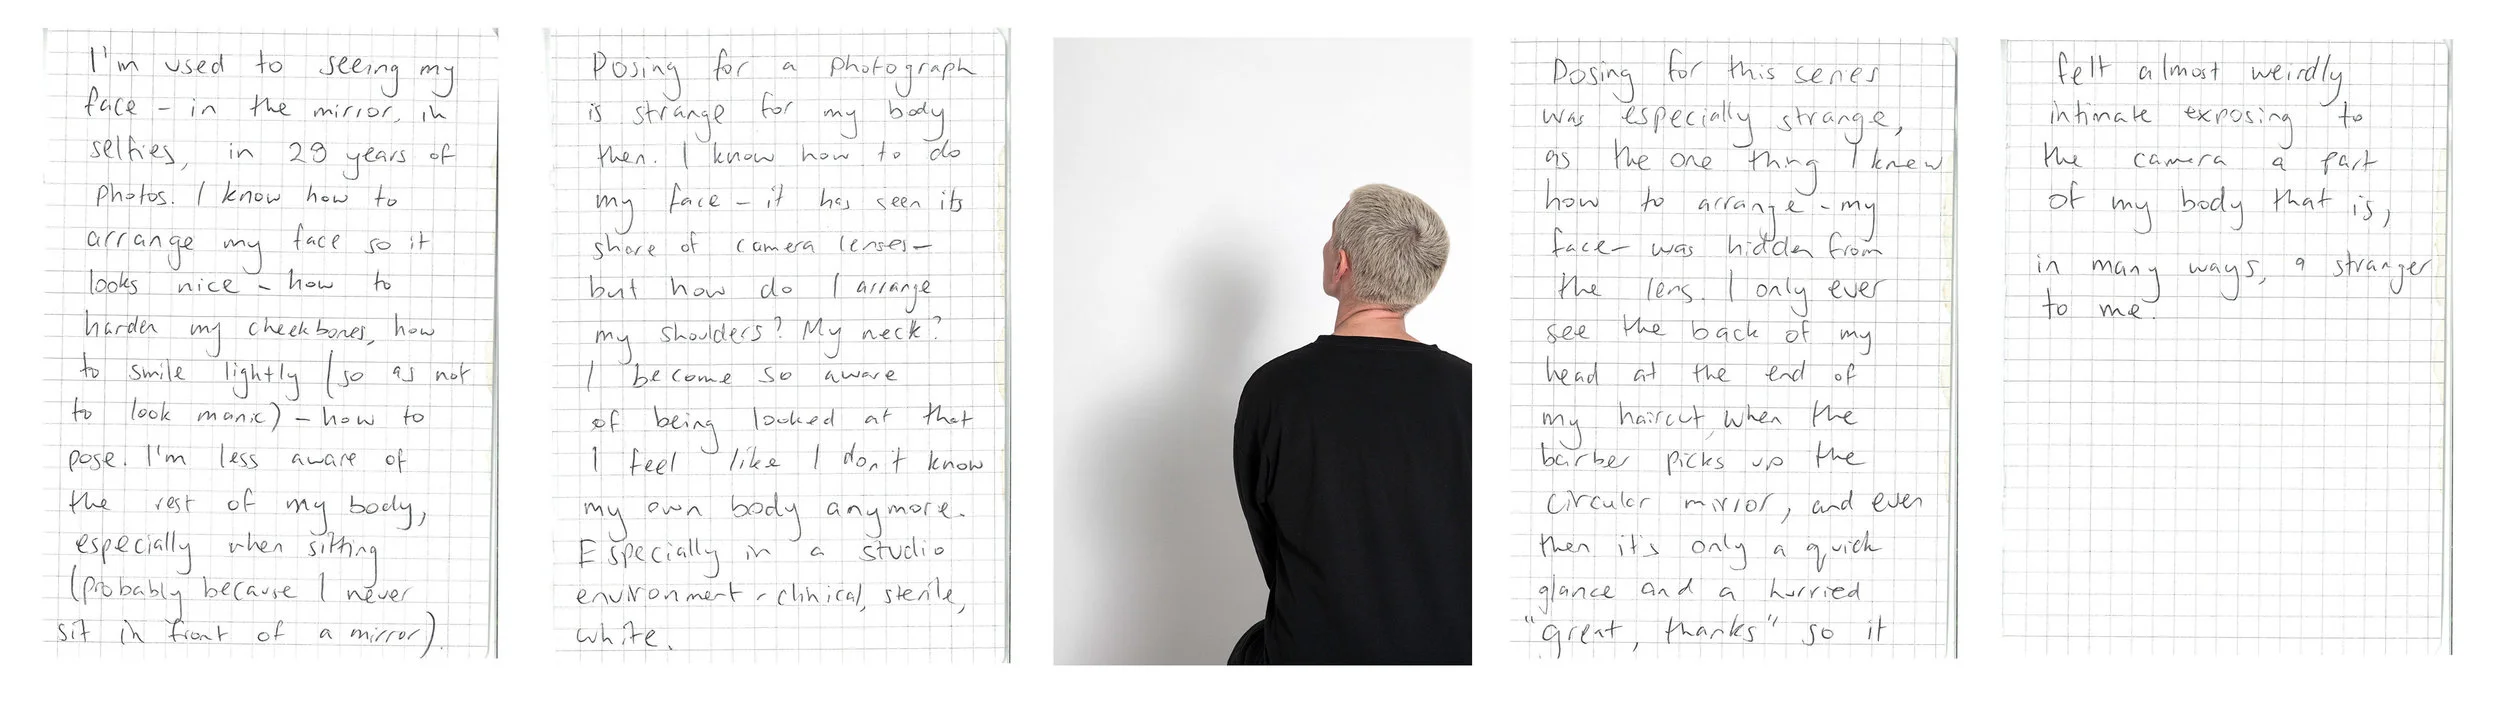 I'm used to seeing my
face - in the mirror, in
selfies, in 29 years of
photos. I know how to
arrange my face so it
looks nice - how to
harden my cheekbones, how
to smile lightly (so as not
to look manic) - how to
pose. I'm less aware of
the rest of my body,
especially when sitting
(probably because I never
sit in front of a mirror).
Posing for a photograph
is strange for my body
then. I know how to do
my face - it has seen its
share of camera lenses -
but how do I arrange
my shoulders? My neck?
I become so aware
of being looked at that
I feel like I don't know
my own body anymore.
Especially in a studio
environment - clinical, sterile,
white.
Posing for this series
was especially strange,
as the one thing I knew
how to arrange - my
face - was hidden from
the lens. I only ever
see the back of my
head at the end of
my haircut, when the
barber picks up the
circular mirror, and even
then it's only a quick
glance and a hurried
"great, thanks" so it
felt almost weirdly
intimate exposing to
the camera a part
of my body that is,
in many ways, a stranger
to me.